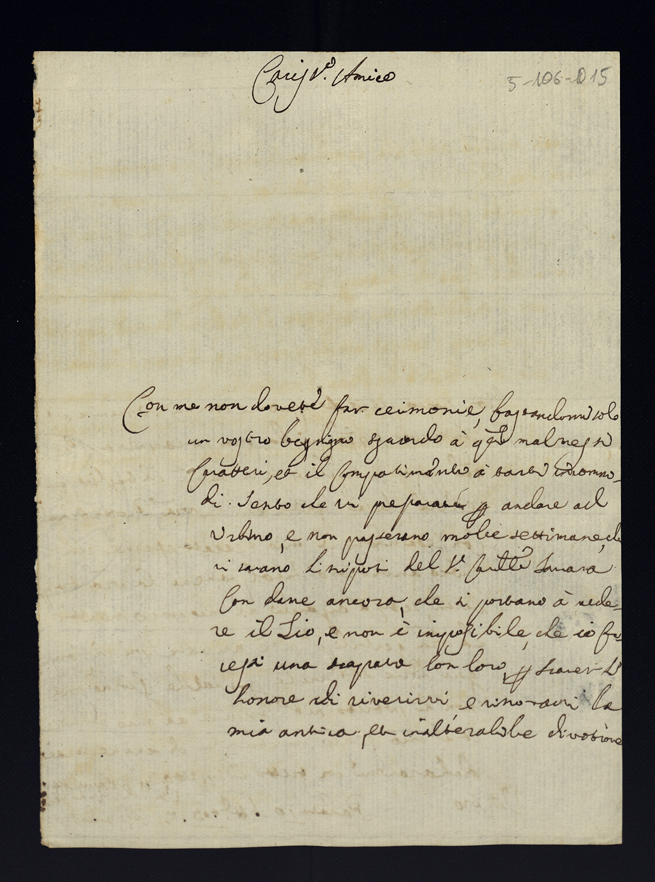 Cariss.º Amico
5-106-015
Con me non dovete far cerimonie, bastandomi solo
un vostro benigno sguardo à q.ti mal messi
Caratteri, et il Compatimento à tanti incommo-
di. Sento che vi preparate p andare ad
Urbino, e non passerano molte settimane, che
vi sarano l nipoti del S.r
Con dame ancora, che si portano à vede-
re il Zio, e non è impossibile, che io fa-
cessi una scapata con loro, p haver l'
honore di riverirvi e rinovarvi la
mia antica, et inalterabile divotione